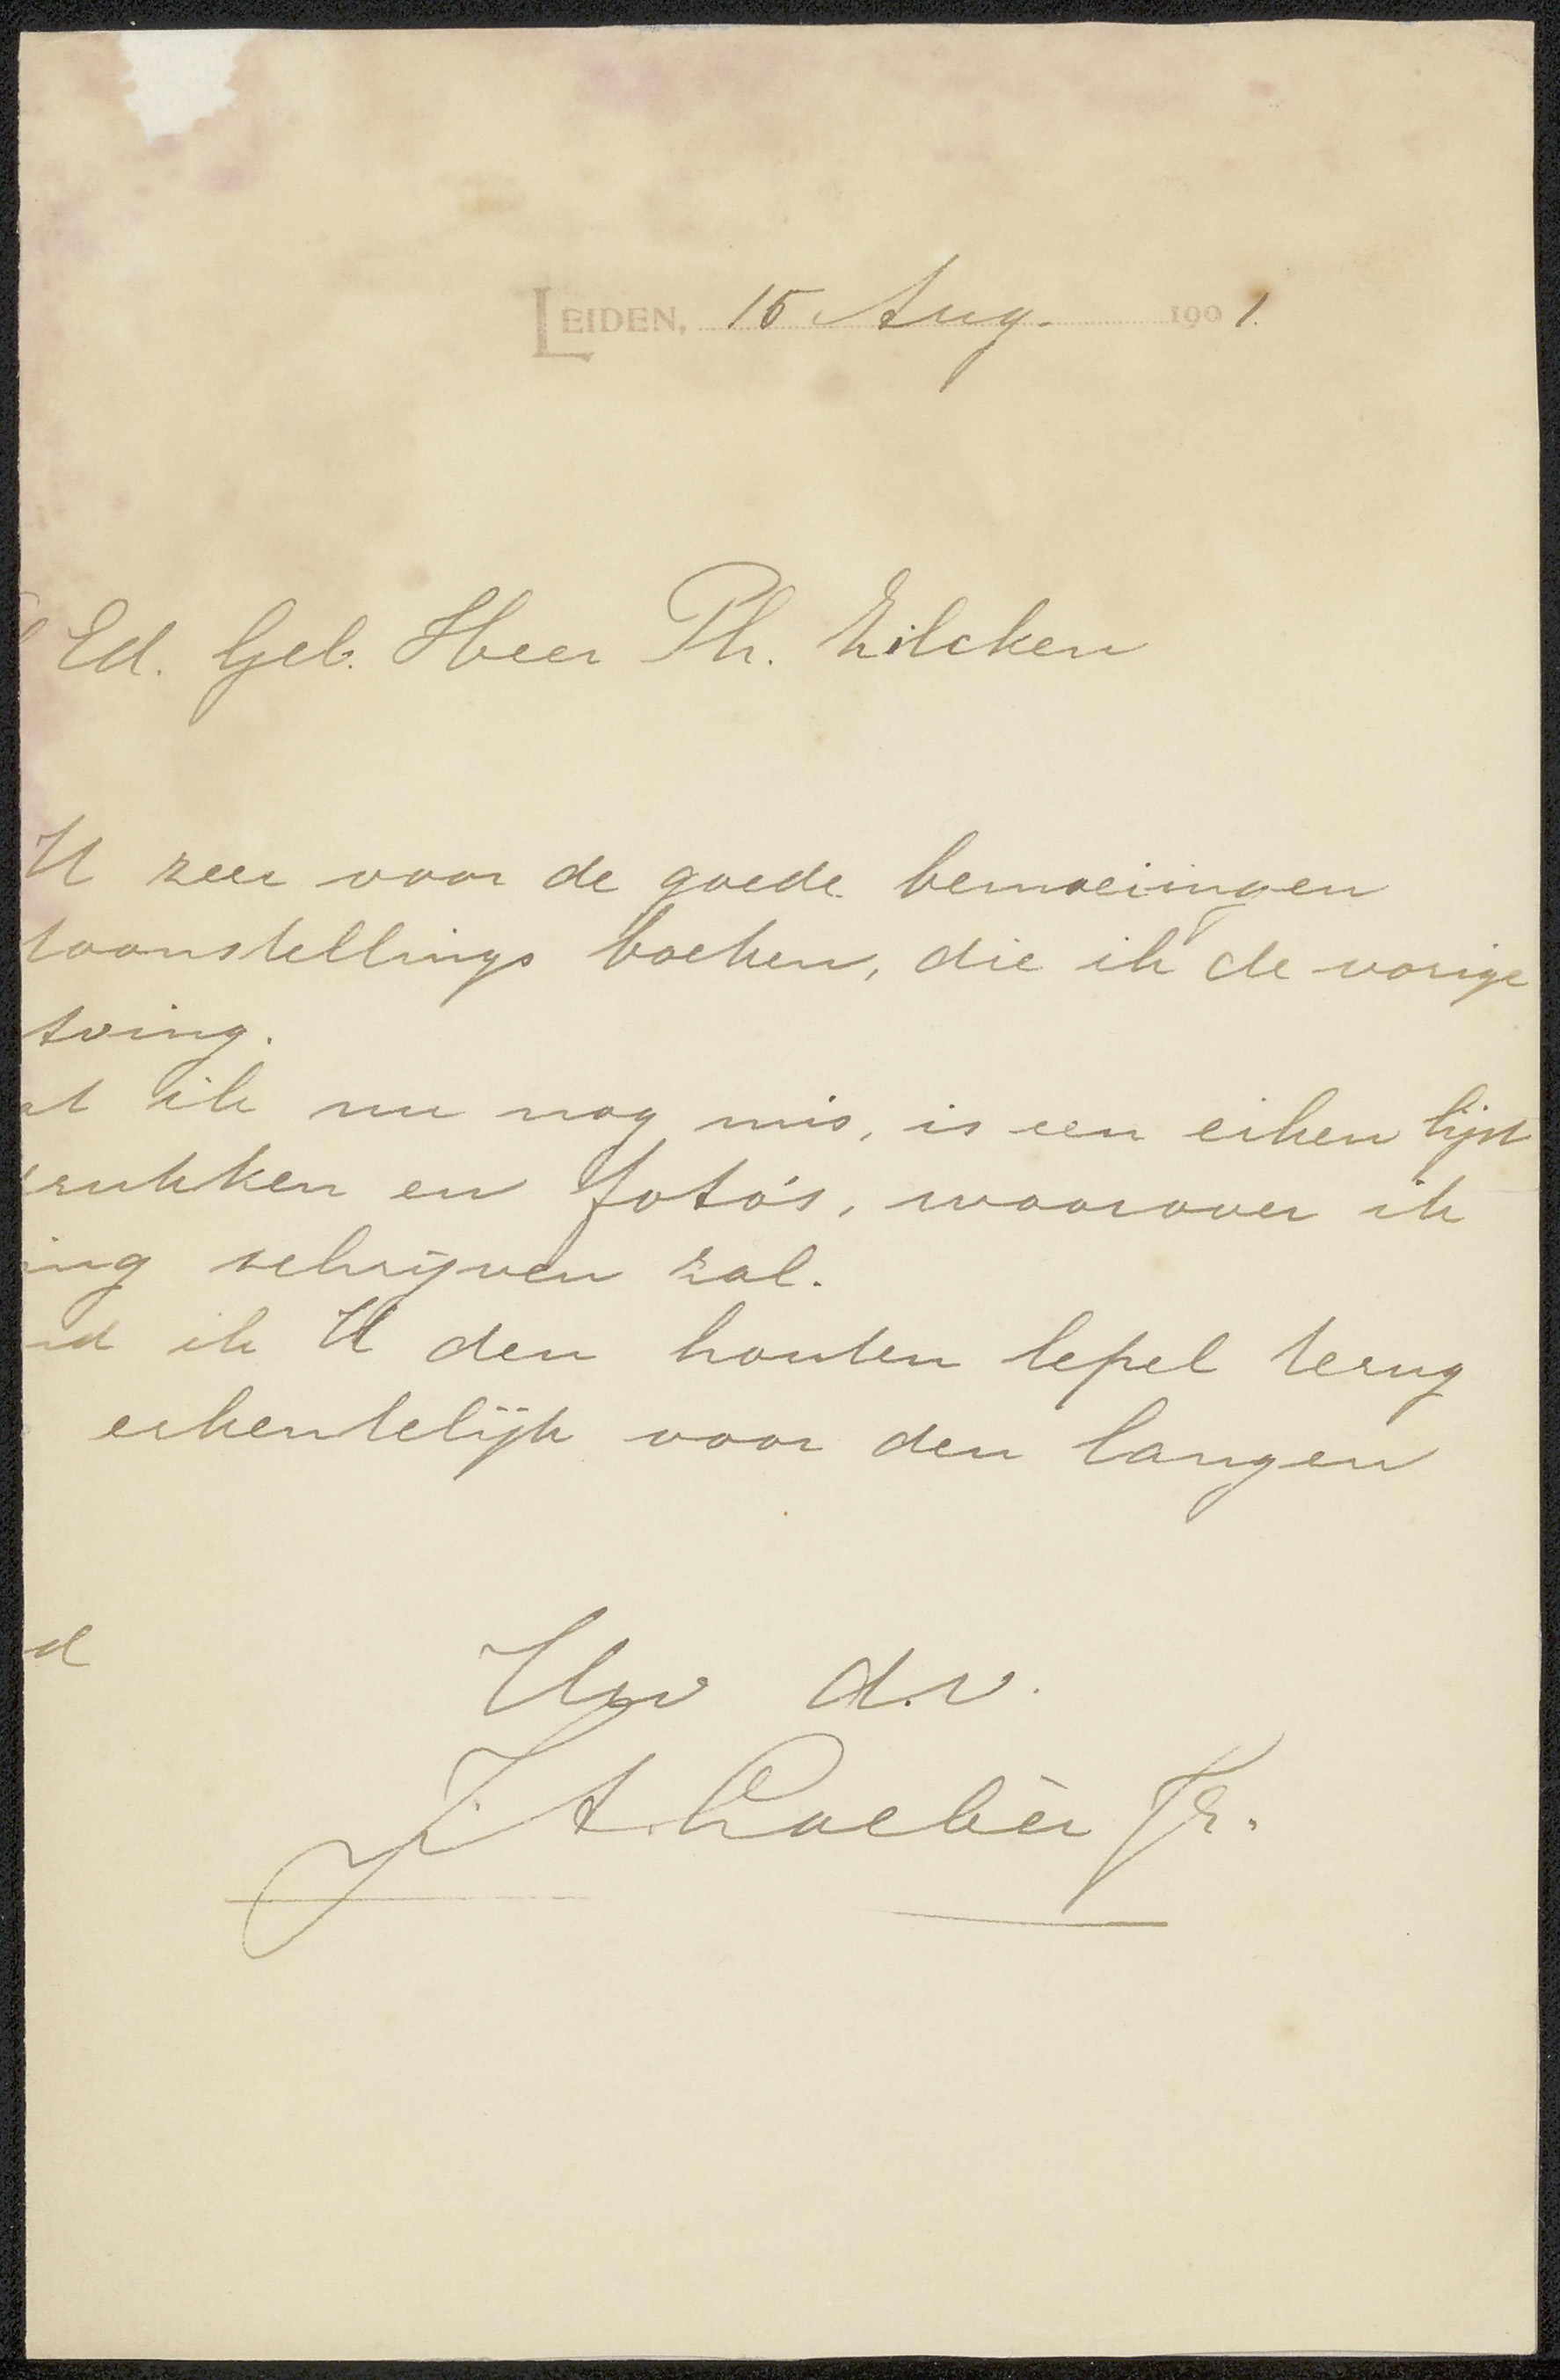 LEIDEN, 15 Aug. 1901.
Ed. Geb. Heer Ph. Zilcken
U zeer voor de goede bemoeiingen
toonstellings boeken, die ik de vorige
tving.
at ik nu nog mis, is een eiken lijst
rukken en foto's, waarover ik
ing schrijven zal.
nd ik U den houten lepel terug
erkentelijk voor den langen
d
Uw d.v.
J. A. Loebèr Jr.